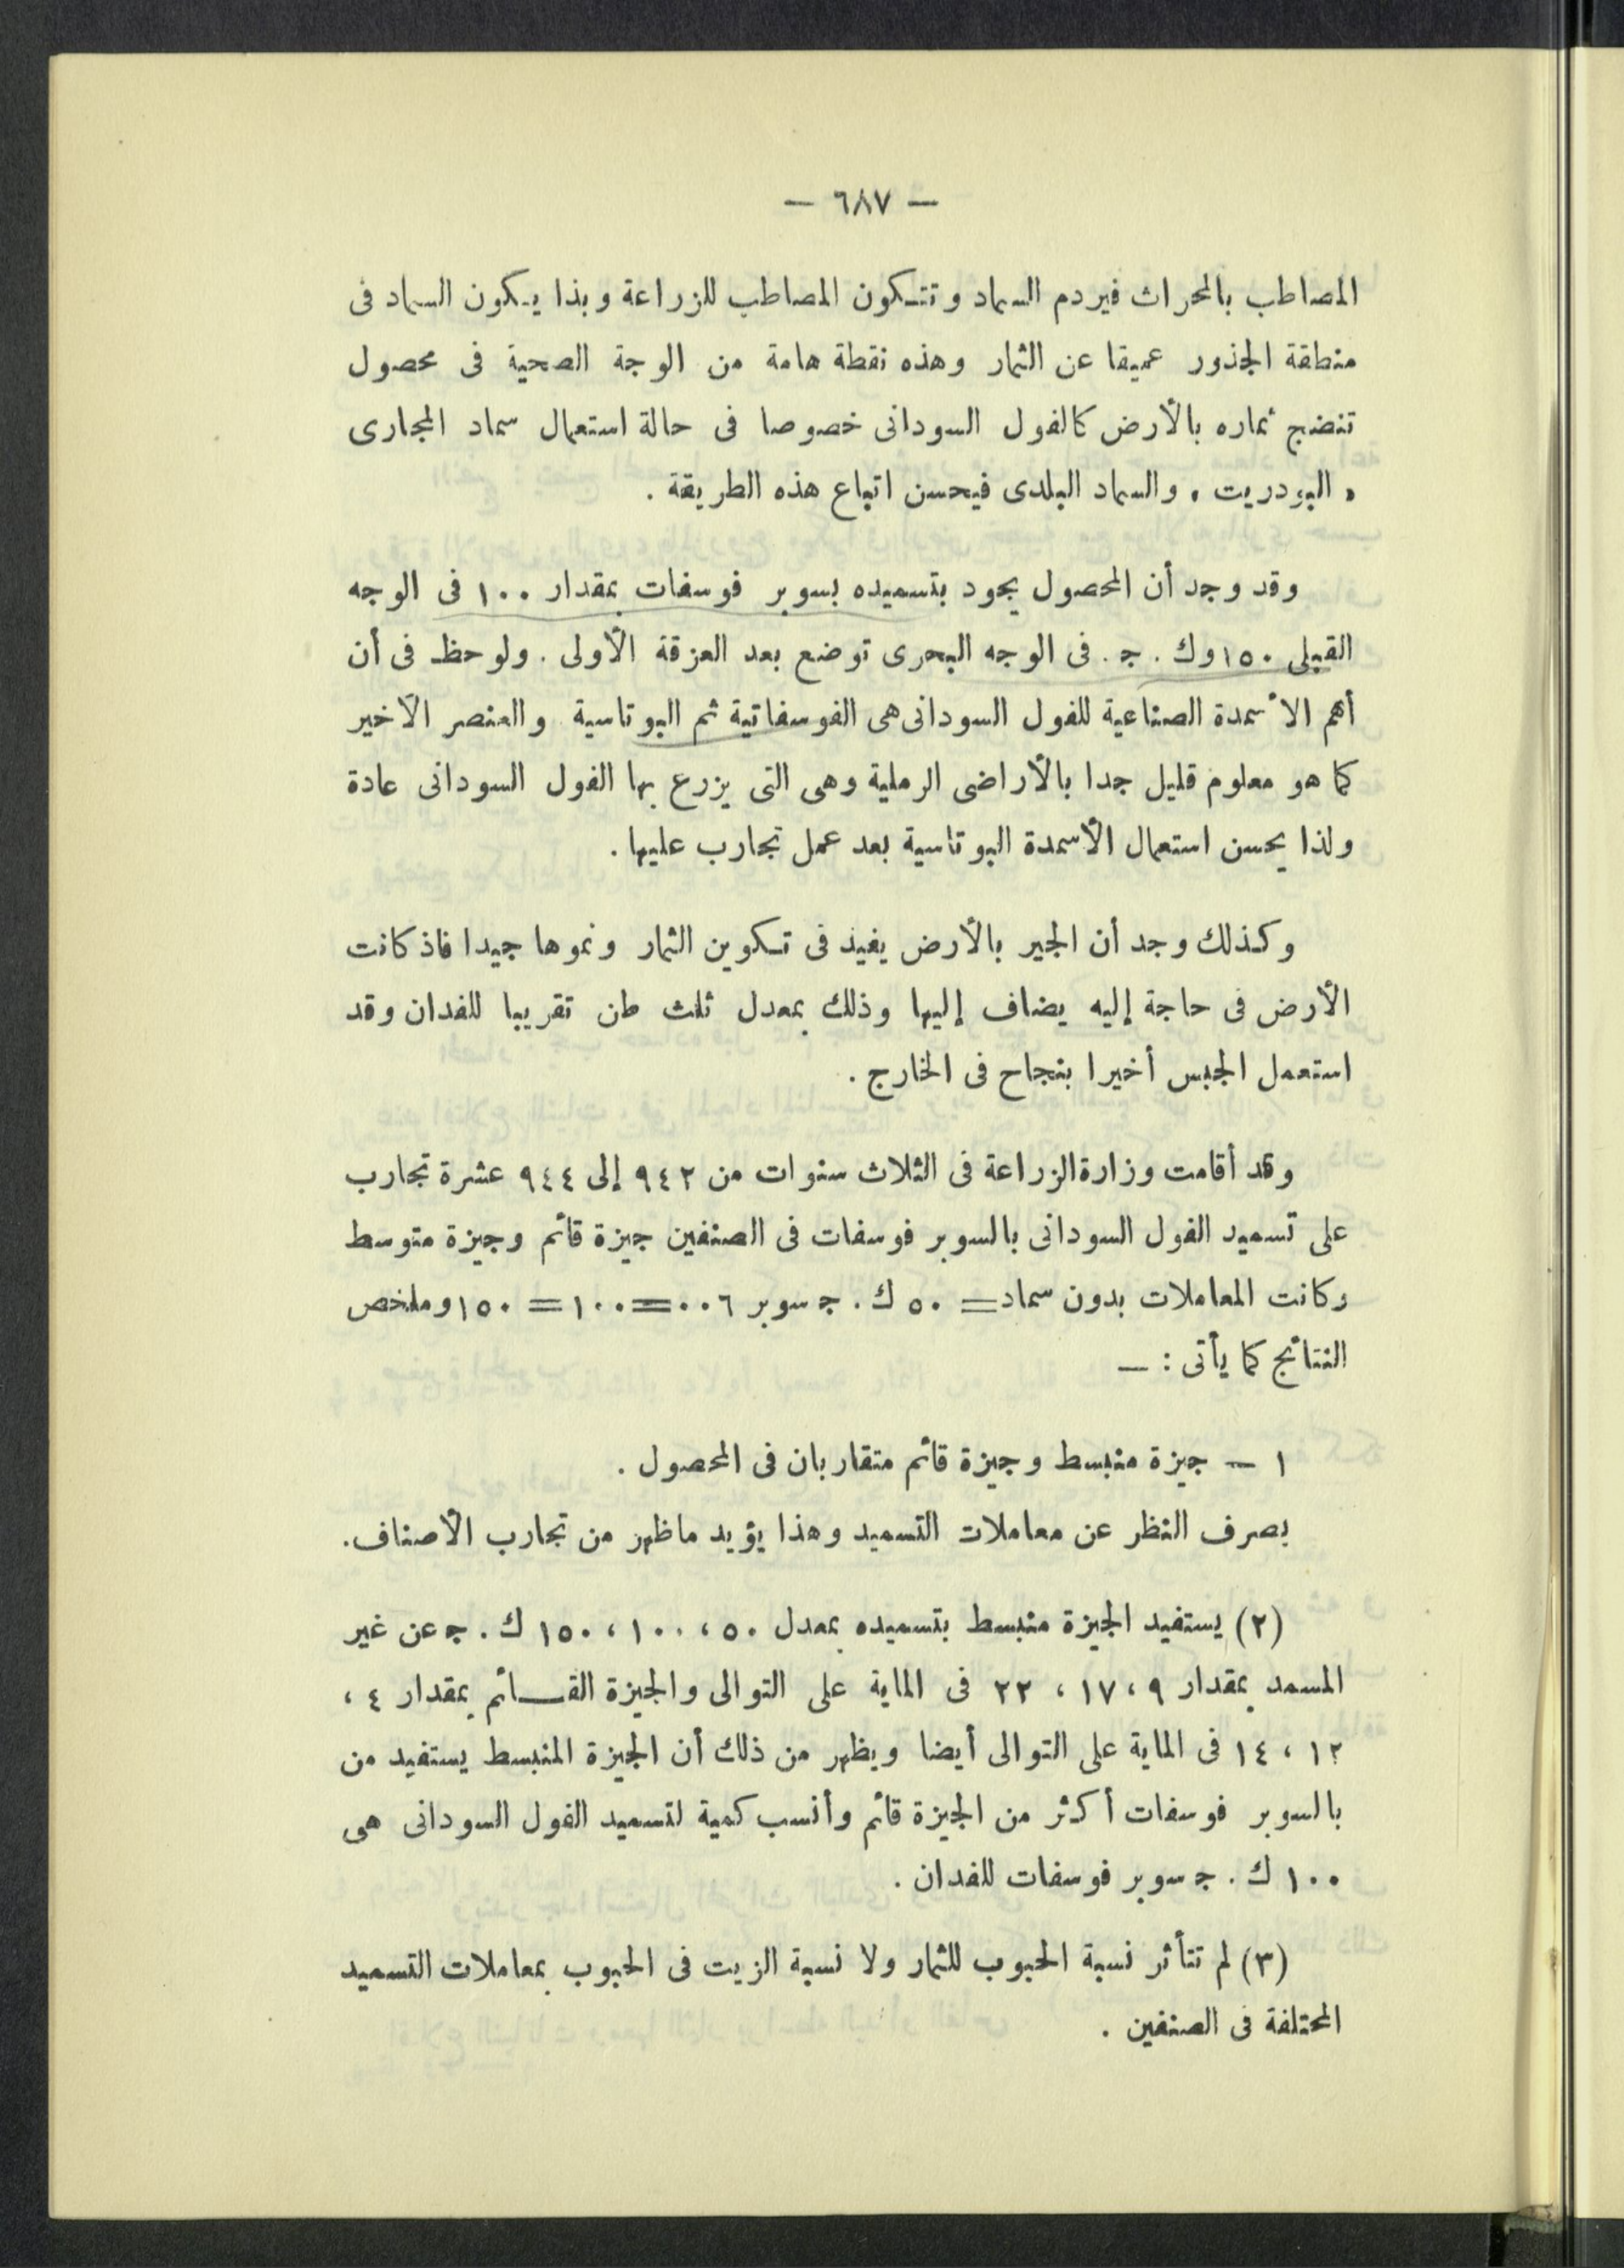 — ٦٨٧ —
المصاطب بالمحراث فيردم السماد وتتكون المصاطب للزراعة وبذا يكون السماد فى
منطقة الجذور عميقا عن الثمار وهذه نقطة هامة من الوجة الصحية فى محصول
تنضج ثماره بالأرض كالفول السودانى خصوصا فى حالة استعمال سماد المجارى
« البودريت » والسماد البلدى فيحسن اتباع هذه الطريقة .
وقد وجد أن المحصول يجود بتسميده بسوبر فوسفات بمقدار ١٠٠ فى الوجه
القبلى ١٥٠ وك . ج . فى الوجه البحرى توضع بعد العزقة الأولى . ولوحظ فى أن
أهم الأسمدة الصناعية للفول السودانى هى الفوسفاتية ثم البوتاسية والعنصر الأخير
كما هو معلوم قليل جدا بالأراضى الرملية وهى التى يزرع بها الفول السودانى عادة
ولذا يحسن استعمال الأسمدة البوتاسية بعد عمل تجارب عليها .
وكذلك وجد أن الجير بالأرض يفيد فى تكوين الثمار ونموها جيدا فاذ كانت
الأرض فى حاجة إليه يضاف إليها وذلك بمعدل ثلث طن تقريبا للفدان وقد
استعمل الجبس أخيرا بنجاح فى الخارج .
وقد أقامت وزارة الزراعة فى الثلاث سنوات من ٩٤٢ إلى ٩٤٤ عشرة تجارب
على تسميد الفول السودانى بالسوبر فوسفات فى الصنفين جيزة قائم وجيزة متوسط
وكانت المعاملات بدون سماد = ٥٠ ك . ج سوبر ٠٠٦ = ١٠٠ = ١٥٠ وملخص
النتائج كما يأتى : —
١ — جيزة منبسط وجيزة قائم متقاربان فى المحصول .
بصرف النظر عن معاملات التسميد وهذا يؤيد ماظهر من تجارب الأصناف .
(٢) يستفيد الجيزة منبسط بتسميده بمعدل ٥٠ ، ١٠٠ ، ١٥٠ ك . ج عن غير
المسمد بمقدار ٩ ، ١٧ ، ٢٢ فى الماية على التوالى والجيزة القائم بمقدار ٤ ،
١٢ ، ١٤ فى الماية على التوالى أيضا ويظهر من ذلك أن الجيزة المنبسط يستفيد من
بالسوبر فوسفات أكثر من الجيزة قائم وأنسب كمية لتسميد الفول السودانى هى
١٠٠ ك . ج سوبر فوسفات للفدان .
(٣) لم تتأثر نسبة الحبوب للثمار ولا نسبة الزيت فى الحبوب بمعاملات التسميد
المختلفة فى الصنفين .